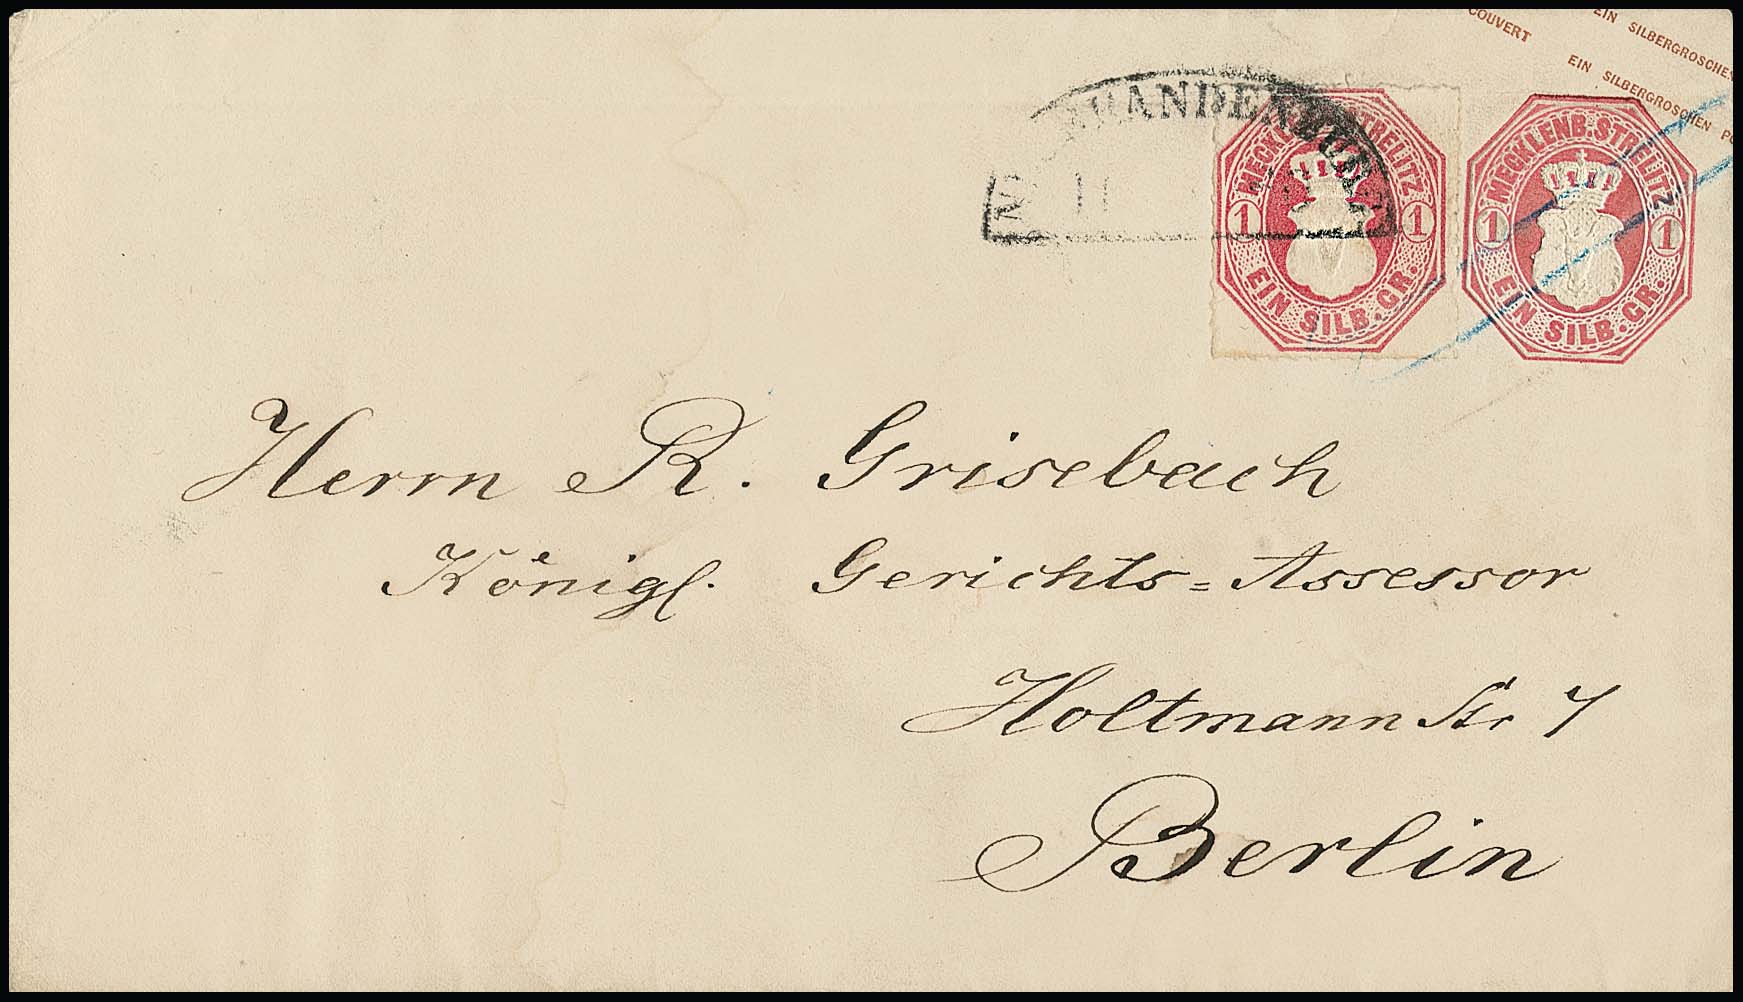 COUVERT
EIN SILBERGROSCHEN
EIN SILBERGROSCHEN
MECKLENB. STRELITZ
1 1
EIN SILB. GR.
MECKLENB. STRELITZ
1 1
EIN SILB. GR.
Herrn R. Grisebach
Königl. Gerichts=Assessor
Holtmann Str 7
Berlin